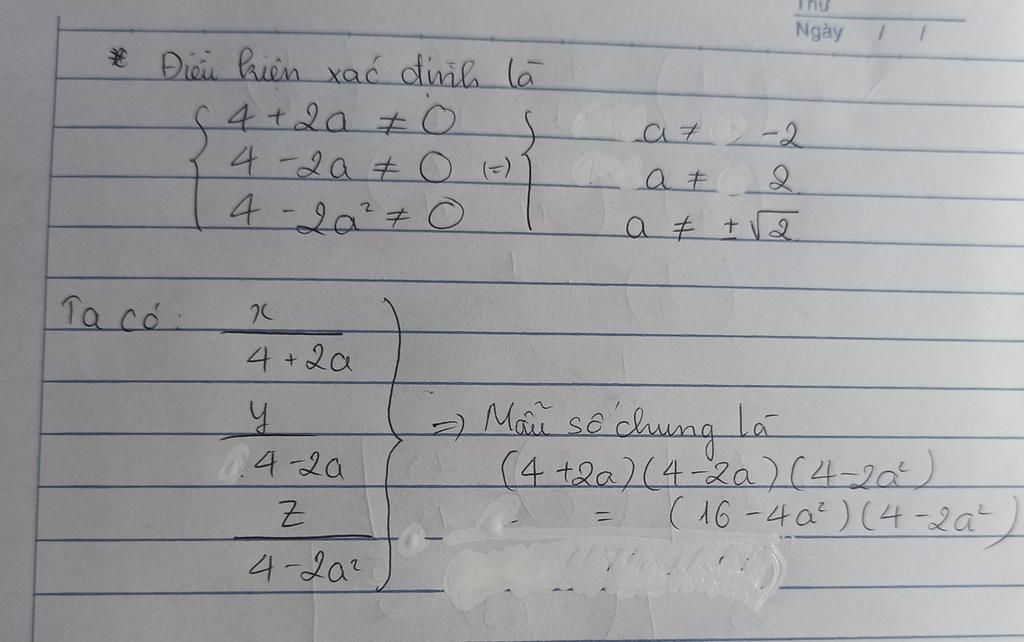 Thứ
Ngày / /
* Điều kiện xác định là
4 + 2a ≠ 0
4 - 2a ≠ 0 (=)
4 - 2a² ≠ 0
a ≠ -2
a ≠ 2
a ≠ ±√2
Ta có:
x / 4 + 2a
y / 4 - 2a
z / 4 - 2a²
=) Mẫu số chung là
(4 + 2a)(4 - 2a)(4 - 2a²)
= (16 - 4a²)(4 - 2a²)